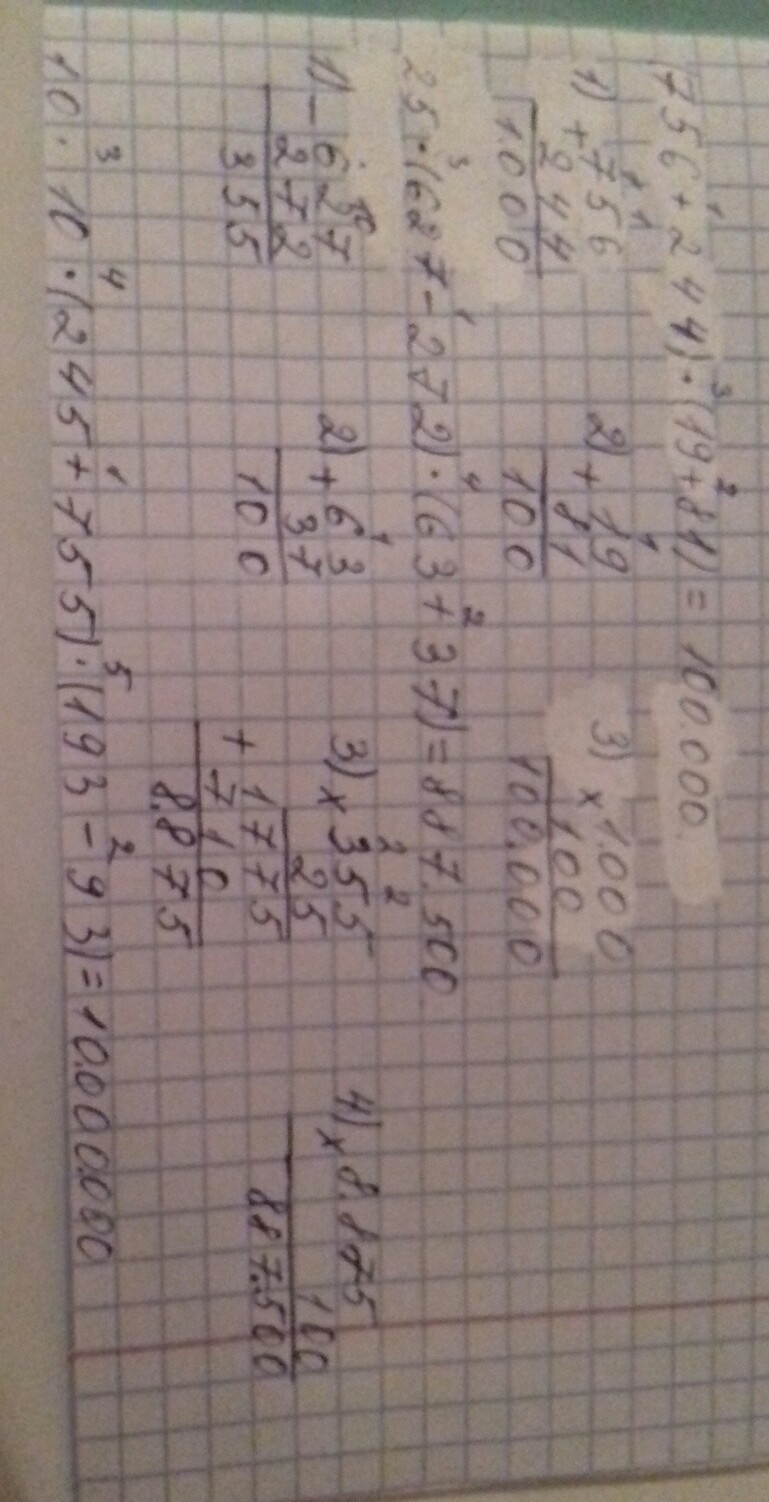 (756+244)·(19+81)=100.000
1 2 3
1) +756
244
1.000
2) +19
81
100
3) ×1.000
100
100.000
25·(627-272)·(63+37)=887.500
1) -627
272
355
2) +63
37
100
3) ×355
25
1775
+710
8.875
4) ×8.875
100
887.500
10·10·(245+755)·(193-93)=10.000.000